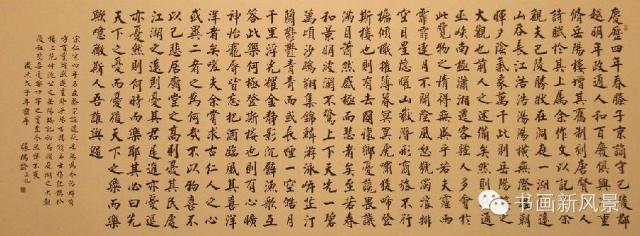 慶曆四年春滕子京謫守巴陵郡
越明年政通人和百廢俱興乃重
脩岳陽樓增其舊制刻唐賢今人
詩賦於其上屬余作文以記之余
觀夫巴陵勝狀在洞庭一湖銜遠
山吞長江浩浩湯湯橫無際涯朝
暉夕陰氣象萬千此則岳陽樓之
大觀也前人之述備矣然則北通
巫峽南極瀟湘遷客騷人多會於
此覽物之情得無異乎若夫霪雨
霏霏連月不開陰風怒號濁浪排
空日星隱燿山岳潛形商旅不行
檣傾楫摧薄暮冥冥虎嘯猿啼登
斯樓也則有去國懷鄉憂讒畏譏
滿目蕭然感極而悲者矣至若春
和景明波瀾不驚上下天光一碧
萬頃沙鷗翔集錦鱗游泳岸芷汀
蘭郁郁青青而或長煙一空皓月
千里浮光耀金靜影沉璧漁歌互
答此樂何極登斯樓也則有心曠
神怡寵辱皆忘把酒臨風其喜洋
洋者矣嗟夫余嘗求古仁人之心
或異二者之為何哉不以物喜不
以己悲居廟堂之高則憂其民處
江湖之遠則憂其君是進亦憂退
亦憂然則何時而樂耶其必曰先
天下之憂而憂後天下之樂而樂
歟噫微斯人吾誰與歸
书画新风景